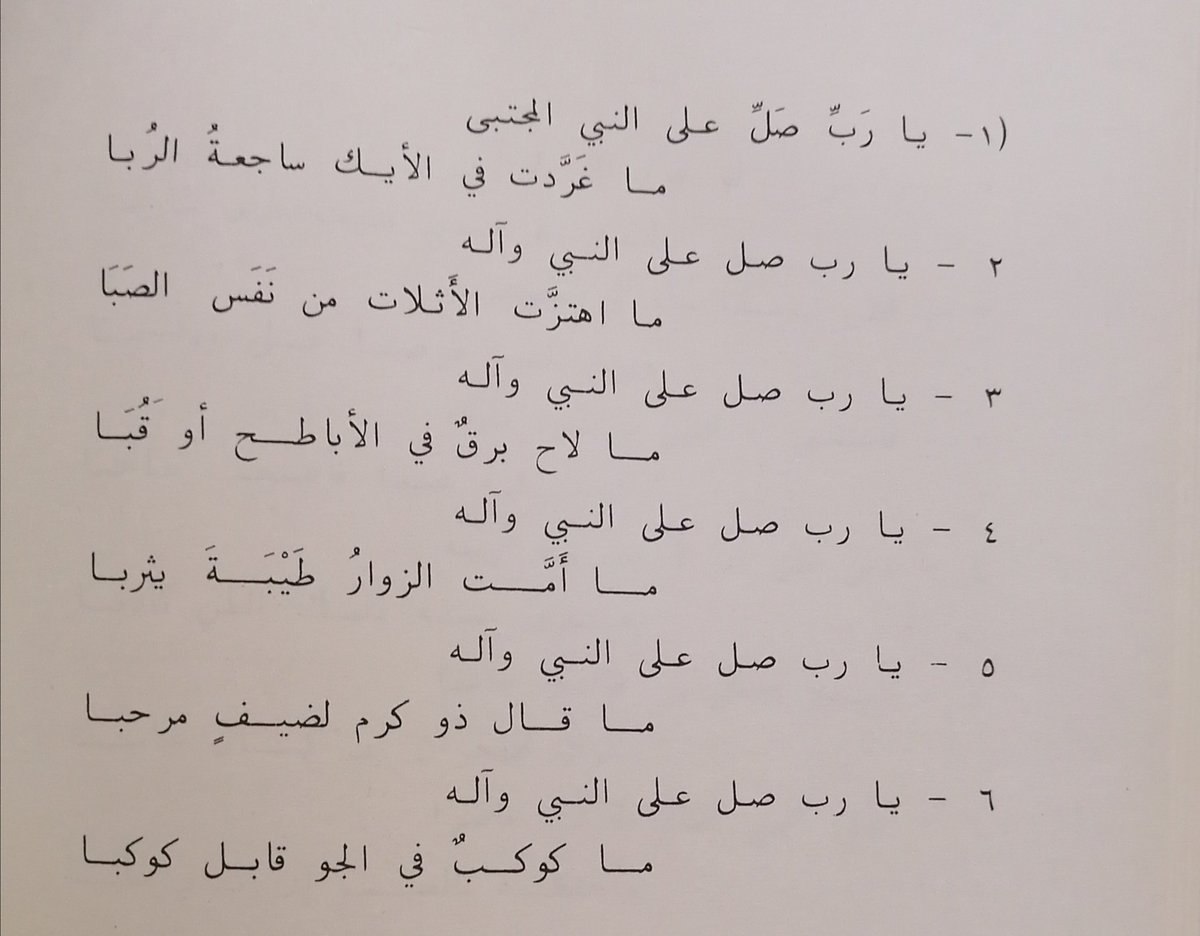 (١- يا رَبِّ صَلِّ على النبي المجتبى
ما غَرَّدت في الأيك ساجعةُ الرُبا
٢ - يا رب صل على النبي وآله
ما اهتزَّت الأَثلات من نَفَس الصَبَا
٣ - يا رب صل على النبي وآله
ما لاح برقٌ في الأباطح أو قُبَا
٤ - يا رب صل على النبي وآله
ما أَمَّت الزوارُ طَيْبَةَ يثربا
٥ - يا رب صل على النبي وآله
ما قال ذو كرم لضيفٍ مرحبا
٦ - يا رب صل على النبي وآله
ما كوكبٌ في الجو قابل كوكبا